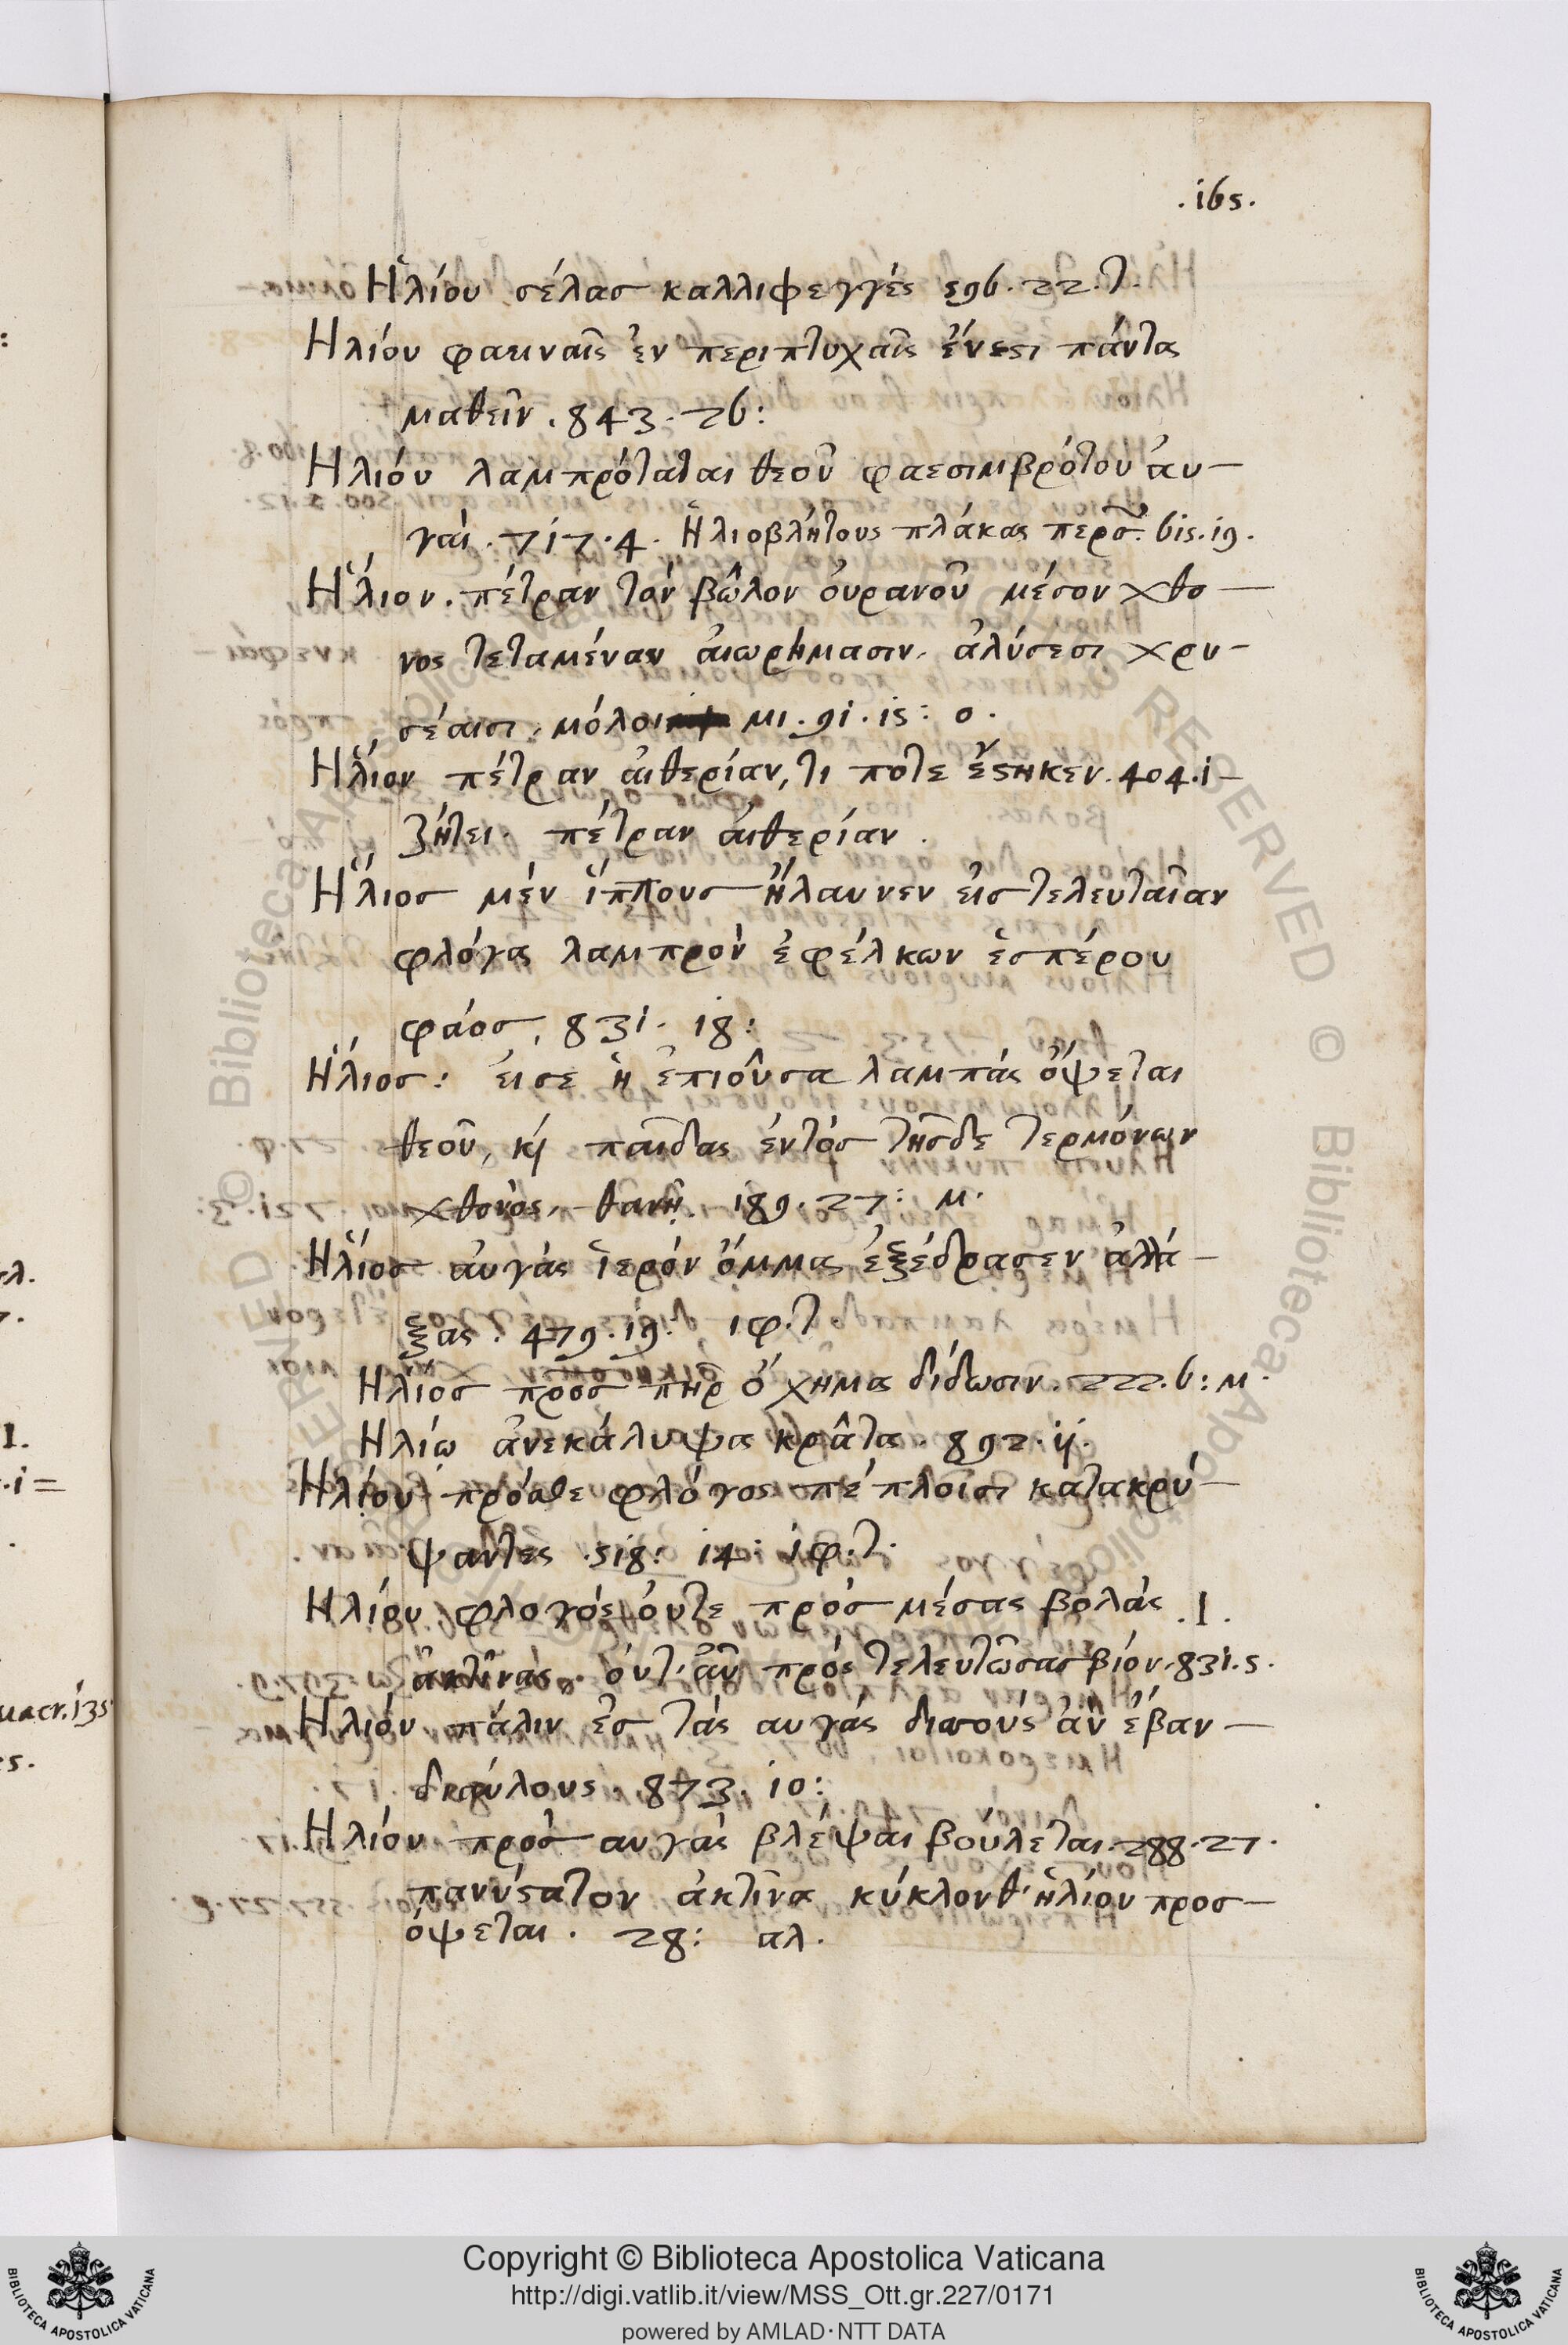 .165.
Ηλίου σέλας καλλιφεγγές 596. 22. τ.
Ηλίου φαεινοῖς ἐν περιπτυχαῖς ἔνεστι πάντα
μαθεῖν . 843. 26:
Ηλιόυ λαμπρόταται θεοῦ φαεσιμβρότου ἀυ-
γαὶ . 717. 4. Ἡλιοβλήτους πλάκας περσ. 615. 19.
Ηλιον . πέτραν τὰν βῶλον ὀυρανοῦ μέσον χθο-
νος τεταμέναν ἀιωρήμασιν. ἁλύσεσι χρυ-
σέαισι, μόλοι μι. 91. 15: ο.
Ηλιον πέτραν ἀιθερίαν, τι ποτε ἔστηκεν. 404. 1-
ζήτει. πέτραν ἀιθερίαν .
Ηλιος μὲν ἵππους ἤλαυνεν ἐις τελευταῖαν
φλόγα λαμπρὸν ἐφέλκων ἑσπέρου
φάος, 831. 18:
Ηλιος: ἔι σε ἡ ἐπιοῦσα λαμπὰς ὄψεται
θεοῦ, κὶ παῖδας ἐντὸς τῆσδε τερμόνων
χθονὸς, θανῆ. 189. 27: μ.
Ηλιος ἀυγὰς ἱερὸν ὄμμα ἐξέδρασεν ἀλλά-
ξας . 479. 19. ιφ. τ
Ηλιος προσ πηρ ὄχημα δίδωσιν. 222. 6: μ.
Ηλίῳ ἀνεκάλυψα κρᾶτα. 892. 11.
Ηλίου πρόσθε φλόγος πέπλοισι κατακρύ-
ψαντες . 518: 14: ιφ. τ.
Ηλίου φλογὸς ὄυτε πρὸς μέσας βολὰς . Ι.
ἀκτῖνας, ὄυτ' ἂν πρὸς τελευτῶσας βίον. 831. 5.
Ηλιόυ πάλιν ἐς τὰς αυγὰς δισσοὺς ἂν ἔβαν-
διαύλους. 873. 10:
Ηλίου πρὸς αυγὰς βλέψαι βούλεται. 288. 27.
πανύστατον ἀκτῖνα κύκλονθ' ἡλίου προσ-
όψεται . 28: αλ.
Copyright © Biblioteca Apostolica Vaticana
http://digi.vatlib.it/view/MSS_Ott.gr.227/0171
powered by AMLAD·NTT DATA